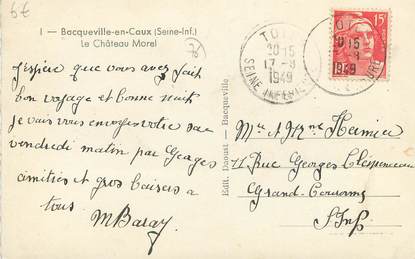 6€
1 - Bacqueville-en-Caux (Seine-Inf.)
Le Château Morel
J'espère que vous avez fait
bon voyage et bonne nuit
je vais vous envoyer votre sac
vendredi matin par Georges
amitiés et gros baisers à
tous.
M Baray
Edit. Daoust - Bacqueville
20 15
17 - 8
1949
SEINE INFERIEURE
15f
15
- 8
1949
Mr et Mme Hamier
Rue Georges Clemenceau
Grand-Couronne
S Inf